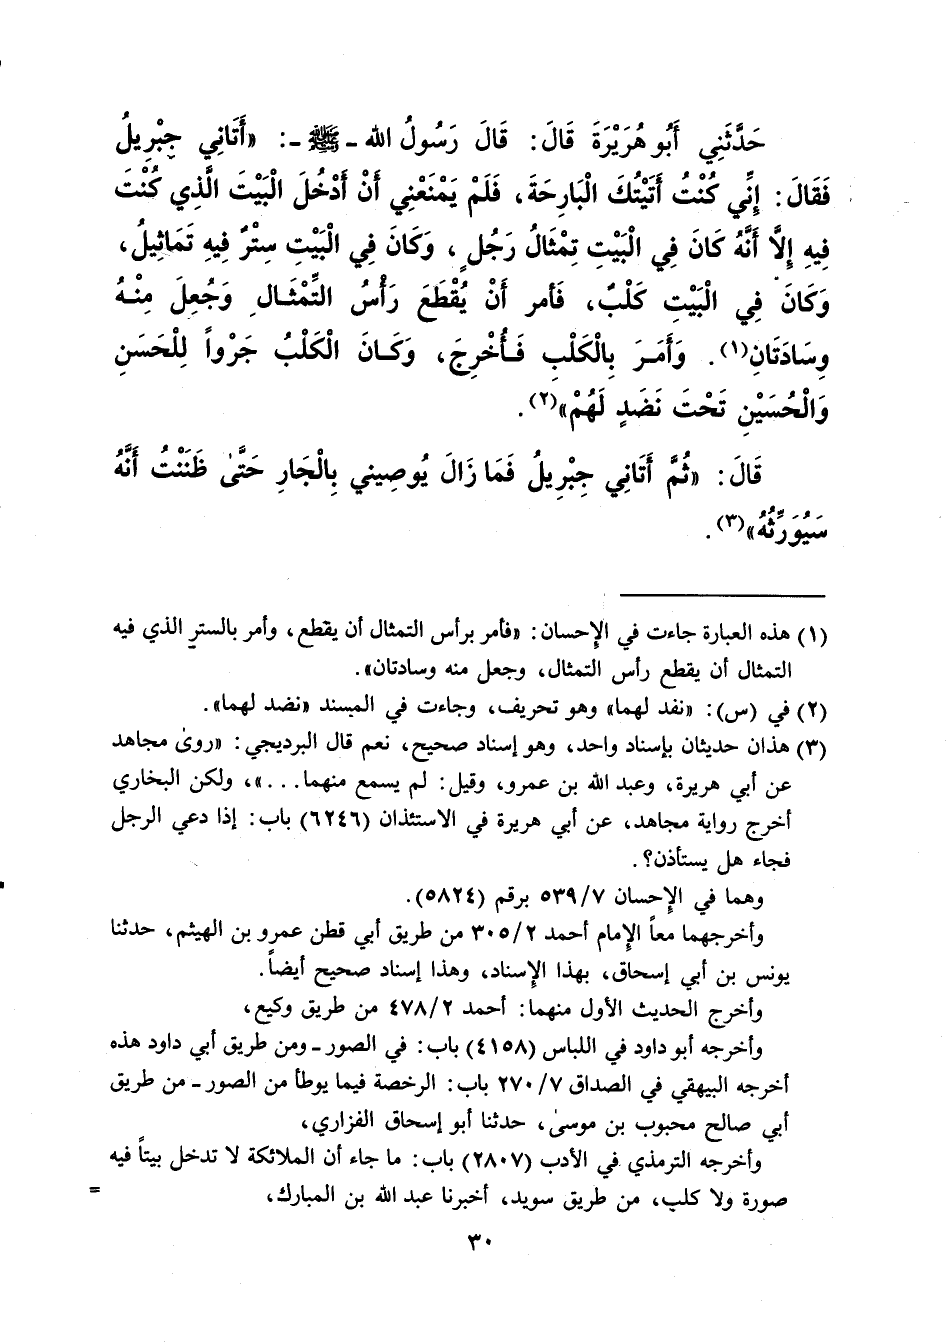 حَدَّثَنِي أَبُو هُرَيْرَةَ قَالَ: قَالَ رَسُولُ الله ـ ﷺ ـ: «أَتَانِي جِبْرِيلُ
فَقَالَ: إِنِّي كُنْتُ أَتَيْتُكَ الْبَارِحَةَ، فَلَمْ يَمْنَعْنِي أَنْ أَدْخُلَ الْبَيْتَ الَّذِي كُنْتَ
فِيهِ إِلَّا أَنَّهُ كَانَ فِي الْبَيْتِ تِمْثَالُ رَجُلٍ، وَكَانَ فِي الْبَيْتِ سِتْرٌ فِيهِ تَمَاثِيلُ،
وَكَانَ فِي الْبَيْتِ كَلْبٌ، فَأمر أَنْ يُقْطَعَ رَأْسُ التِّمْثَـالِ وَجُعِلَ مِنْـهُ
وِسَادَتَانِ(١). وَأَمَـرَ بِالْكَلْبِ فَـأُخْرِجَ، وَكَـانَ الْكَلْبُ جَرْواً لِلْحَسَنِ
وَالْحُسَيْنِ تَحْتَ نَضَدٍ لَهُمْ»(٢).
قَالَ: «ثُمَّ أَتَانِي جِبْرِيلُ فَمَا زَالَ يُوصِينِي بِالْجَارِ حَتَّىٰ ظَنَنْتُ أَنَّهُ
سَيُوَرِّثُهُ»(٣).
(١) هذه العبارة جاءت في الإحسان: «فأمر برأس التمثال أن يقطع، وأمر بالستر الذي فيه
التمثال أن يقطع رأس التمثال، وجعل منه وسادتان».
(٢) في (س): «نفد لهما» وهو تحريف، وجاءت في المسند «نضد لهما».
(٣) هذان حديثان بإسناد واحد، وهو إسناد صحيح، نعم قال البرديجي: «روىٰ مجاهد
عن أبي هريرة، وعبد الله بن عمرو، وقيل: لم يسمع منهما...»، ولكن البخاري
أخرج رواية مجاهد، عن أبي هريرة في الاستئذان (٦٢٤٦) باب: إذا دعي الرجل
فجاء هل يستأذن؟.
وهما في الإحسان ٧/ ٥٣٩ برقم (٥٨٢٤).
وأخرجهما معاً الإمام أحمد ٢/ ٣٠٥ من طريق أبي قطن عمرو بن الهيثم، حدثنا
يونس بن أبي إسحاق، بهذا الإسناد، وهذا إسناد صحيح أيضاً.
وأخرج الحديث الأول منهما: أحمد ٢/ ٤٧٨ من طريق وكيع،
وأخرجه أبو داود في اللباس (٤١٥٨) باب: في الصور ـ ومن طريق أبي داود هذه
أخرجه البيهقي في الصداق ٧/ ٢٧٠ باب: الرخصة فيما يوطأ من الصور ـ من طريق
أبي صالح محبوب بن موسىٰ، حدثنا أبو إسحاق الفزاري،
وأخرجه الترمذي في الأدب (٢٨٠٧) باب: ما جاء أن الملائكة لا تدخل بيتاً فيه
صورة ولا كلب، من طريق سويد، أخبرنا عبد الله بن المبارك، =
٣٠